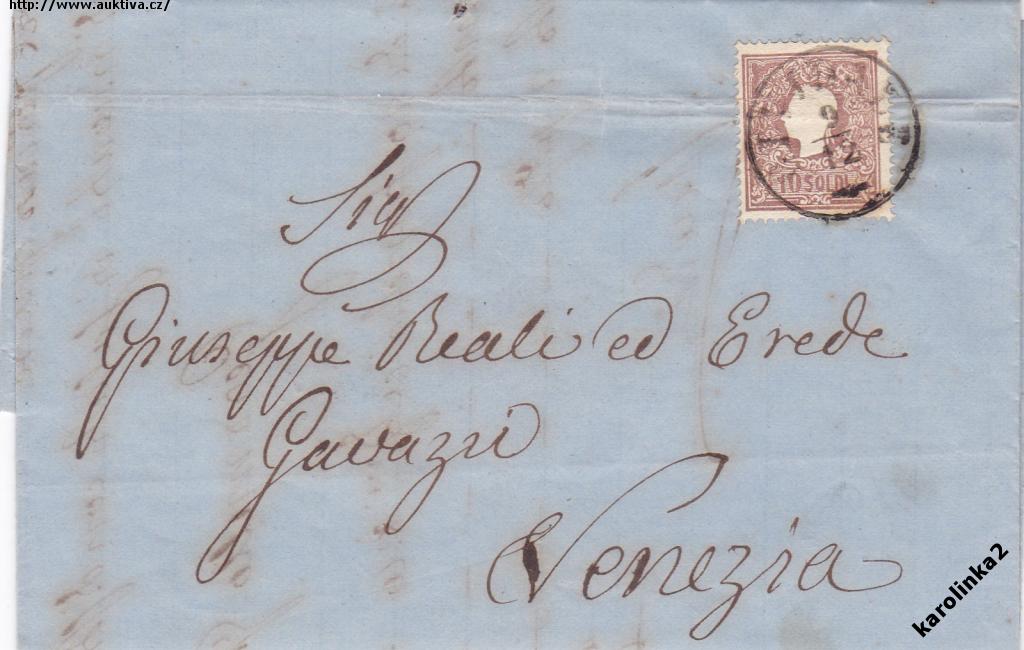 http://www.auktiva.cz/
9
12
10 SOLDI
Sig
Giuseppe Reali ed Erede
Gavazzi
Venezia
karolinka2